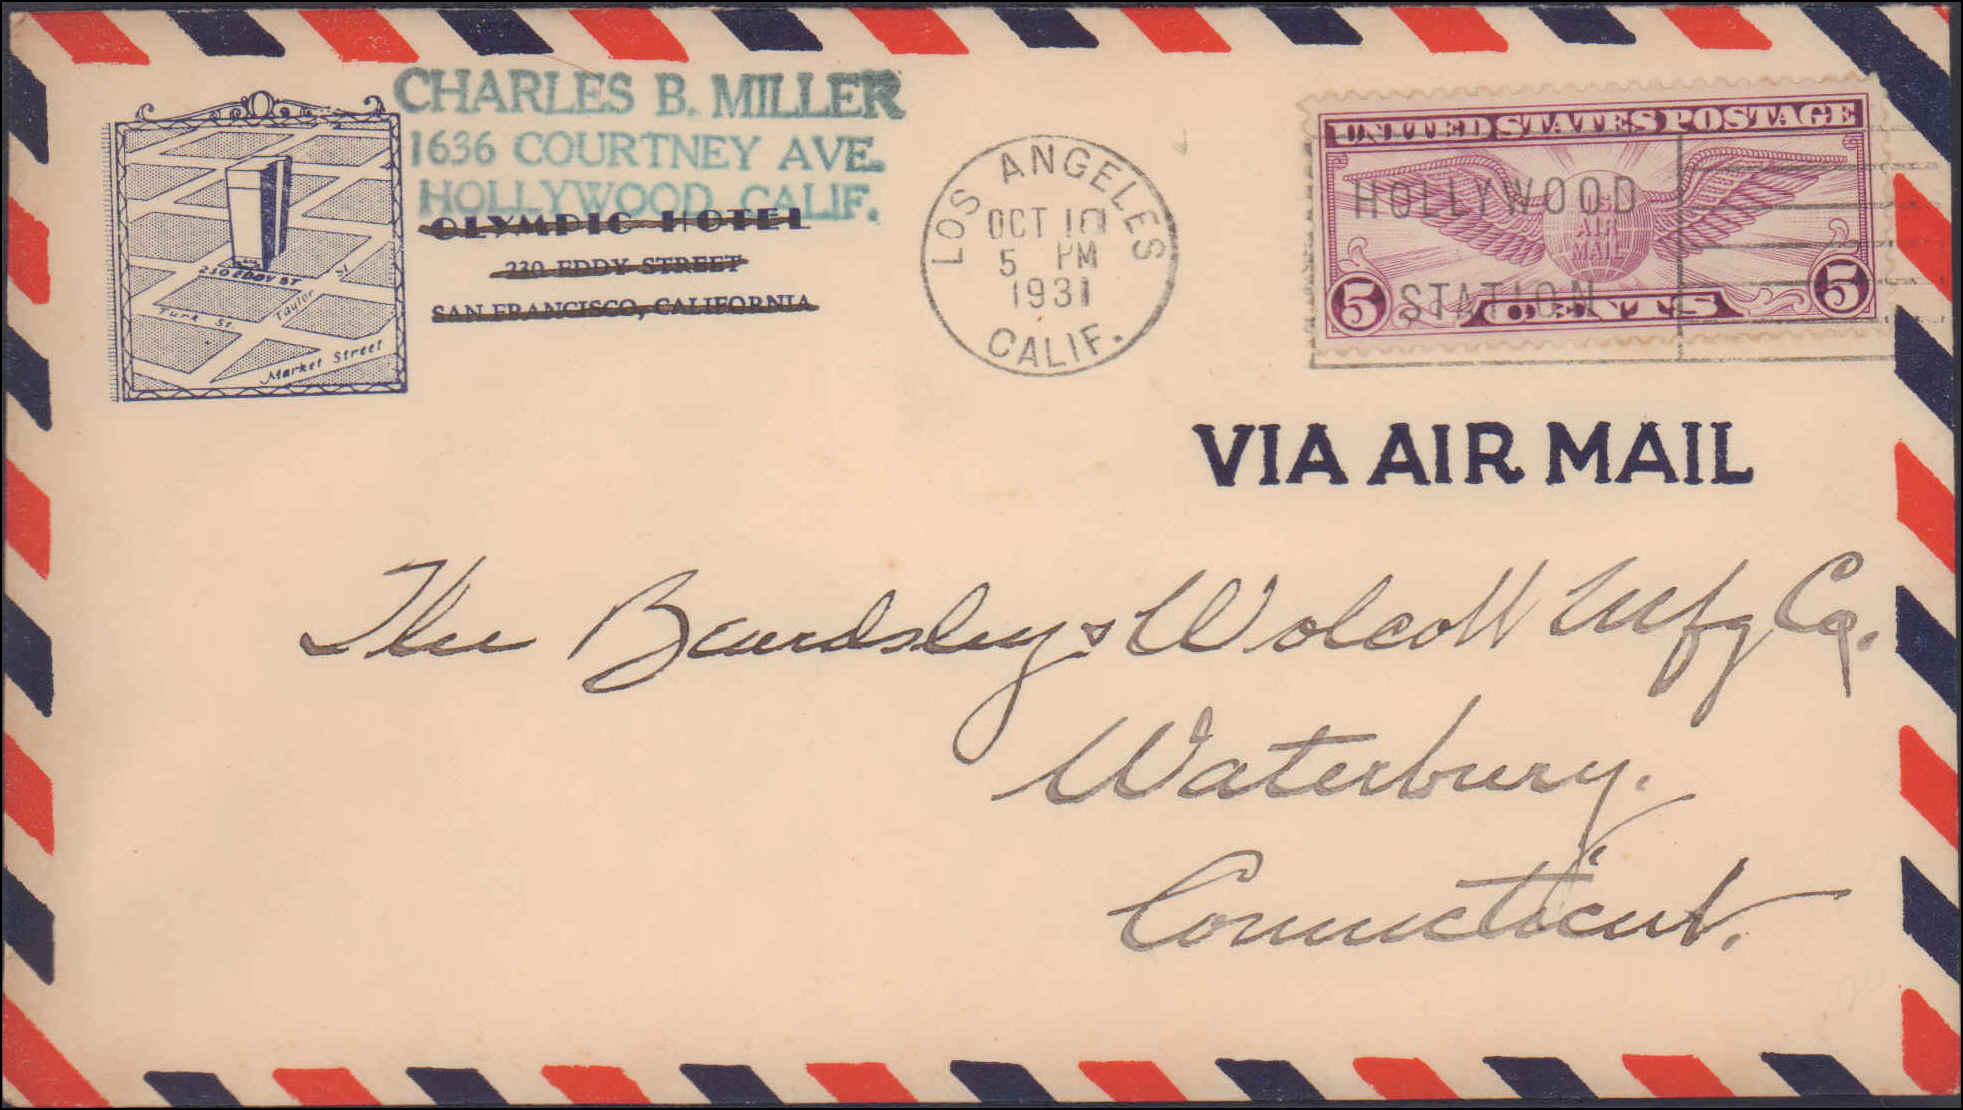 CHARLES B. MILLER
1636 COURTNEY AVE.
HOLLYWOOD, CALIF.
OLYMPIC HOTEL
230 EDDY STREET
SAN FRANCISCO, CALIFORNIA
230 EDDY ST
Turk St.
Taylor St
Market Street
LOS ANGELES
OCT 10
5 PM
1931
CALIF.
UNITED STATES POSTAGE
HOLLYWOOD
U.S.
AIR
MAIL
STATION
5 CENTS 5
VIA AIR MAIL
The Beardsley & Wolcott Mfg Co.
Waterbury.
Connecticut.